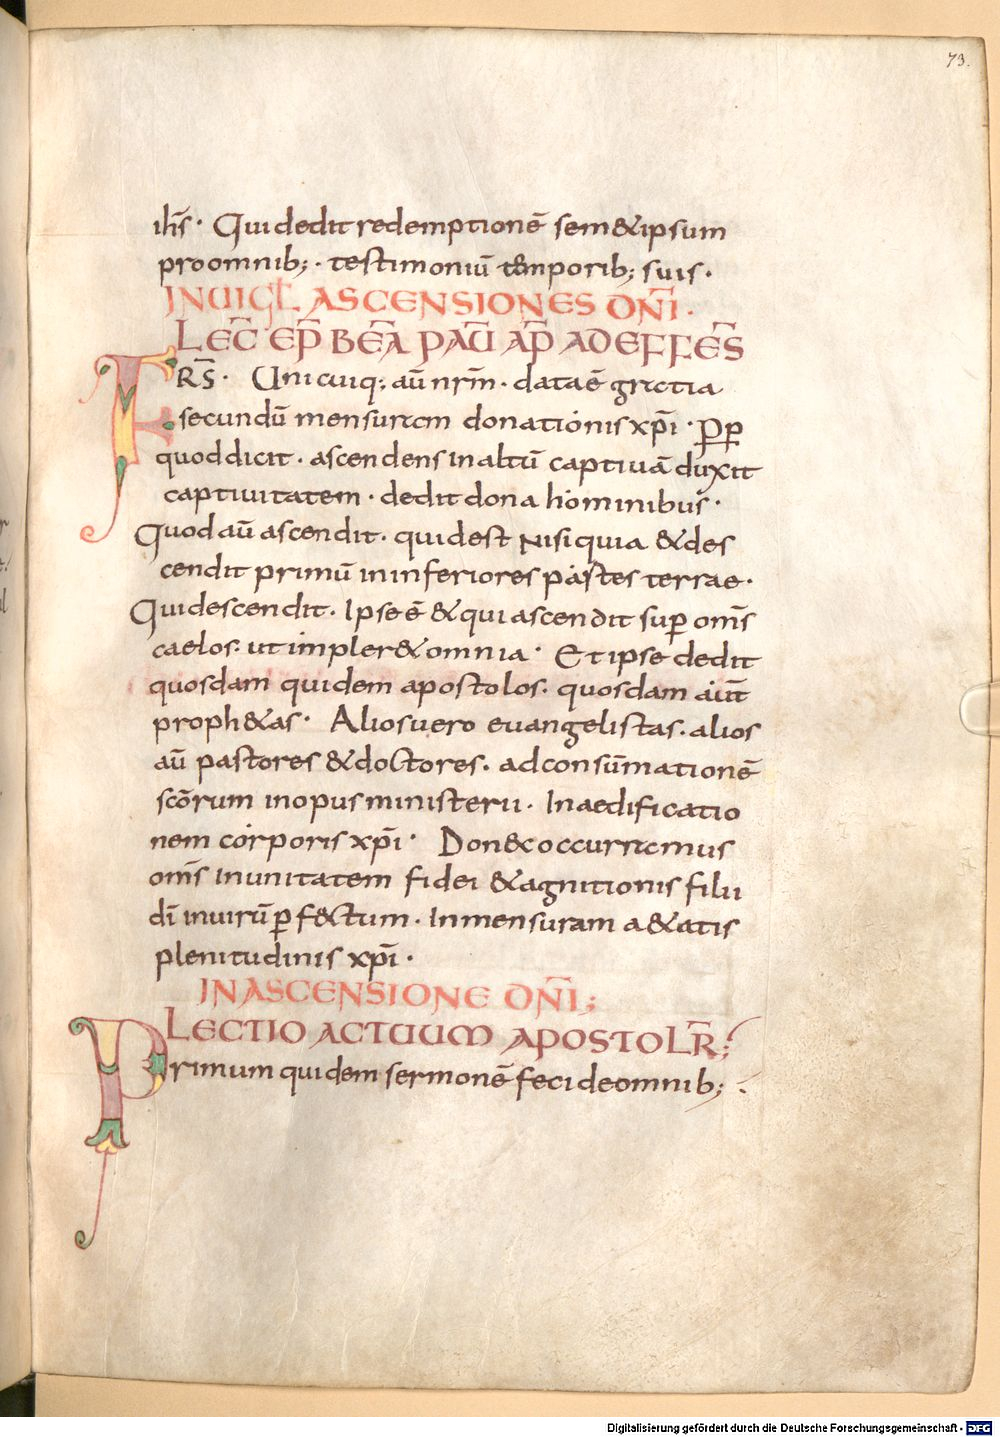 73.
ih̅s · Qui dedit redemptionē sem&ipsum
pro omnib; · testimoniū temporib; suis ·
IN UIGL̅ ASCENSIONES DN̅I ·
LEC̅ EP̅ BEA̅ PAU̅ AP̅ AD EFFES̅
FRS̅ · Unicuiq; aū nr̅m · data ē gratia
secundū mensuram donationis xp̅i · P̲p̲
quod dicit · ascendens in altū captiuā duxit
captiuitatem · dedit dona hominibus ·
Quod aū ascendit · quid est nisi quia & des
cendit primū in inferiores partes terrae ·
Qui descendit · Ipse ē & qui ascendit sup̲ om̅s
caelos · ut impler& omnia · Et ipse dedit
quosdam quidem apostolos · quosdam aut̅
proph&as · Alios uero euangelistas · alios
aū pastores & doctores · ad consūmationē
sc̅orum in opus ministerii · In aedificatio
nem corporis xp̅i · Donec occurramus
om̅s in unitatem fidei & agnitionis filii
dī in uirū p̲f&ctum · In mensuram a&atis
plenitudinis xp̅i ·
IN ASCENSIONE DN̅I;
LECTIO ACTUUM APOSTOLR̅;
Primum quidem sermonē feci de omnib; ·
Digitalisierung gefördert durch die Deutsche Forschungsgemeinschaft - DFG